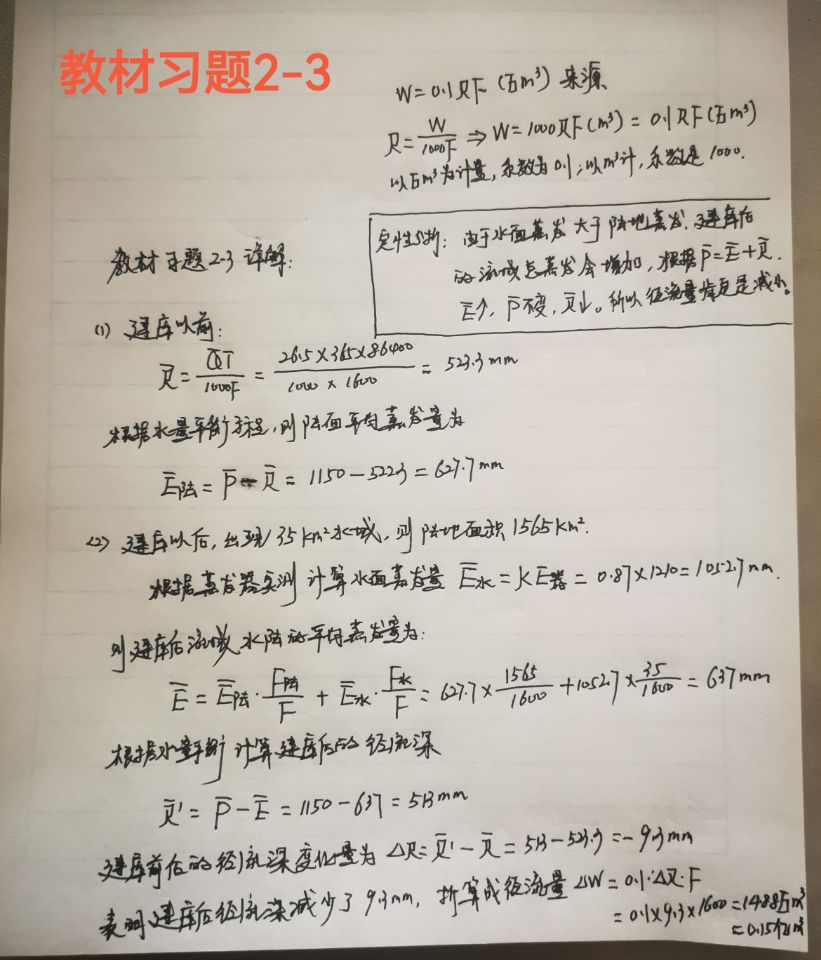 教材习题2-3
W=0.1RF (万m³) 来源
R̄ = W/1000F ⇒ W=1000R̄F(m³) = 0.1R̄F(万m³)
以万m³为计量,系数为0.1;以m³计,系数是1000.
定性分析:由于水面蒸发大于陆地蒸发,建库后
的流域总蒸发会增加,根据P̄=Ē+R̄.
Ē↑,P̄不变,R̄↓。所以径流量肯定是减小。
教材习题2-3详解:
(1) 建库以前:
R̄ = Q̄T/1000F = 26.5×365×86400/1000×1600 = 523.3mm
根据水量平衡方程,则陆面平均蒸发量为
Ē陆 = P̄-R̄ = 1150-522.3 = 627.7mm
(2) 建库以后,出现35km²水域,则陆地面积1565km².
根据蒸发器实测计算水面蒸发量 Ē水=KE器=0.87×1210=1052.7mm.
则建库后流域水陆的平均蒸发量为:
Ē = Ē陆·F陆/F + Ē水·F水/F = 627.7×1565/1600 + 1052.7×35/1600 = 637mm
根据水量平衡计算建库后的径流深
R̄' = P̄-Ē = 1150-637 = 513mm
建库前后的径流深变化量为 ΔR=R̄'-R̄ = 513-523.3=-9.3mm
表明建库后径流深减少了9.3mm,折算成径流量 ΔW=0.1·ΔR·F
=0.1×9.3×1600=1488万m³
=0.15亿m³